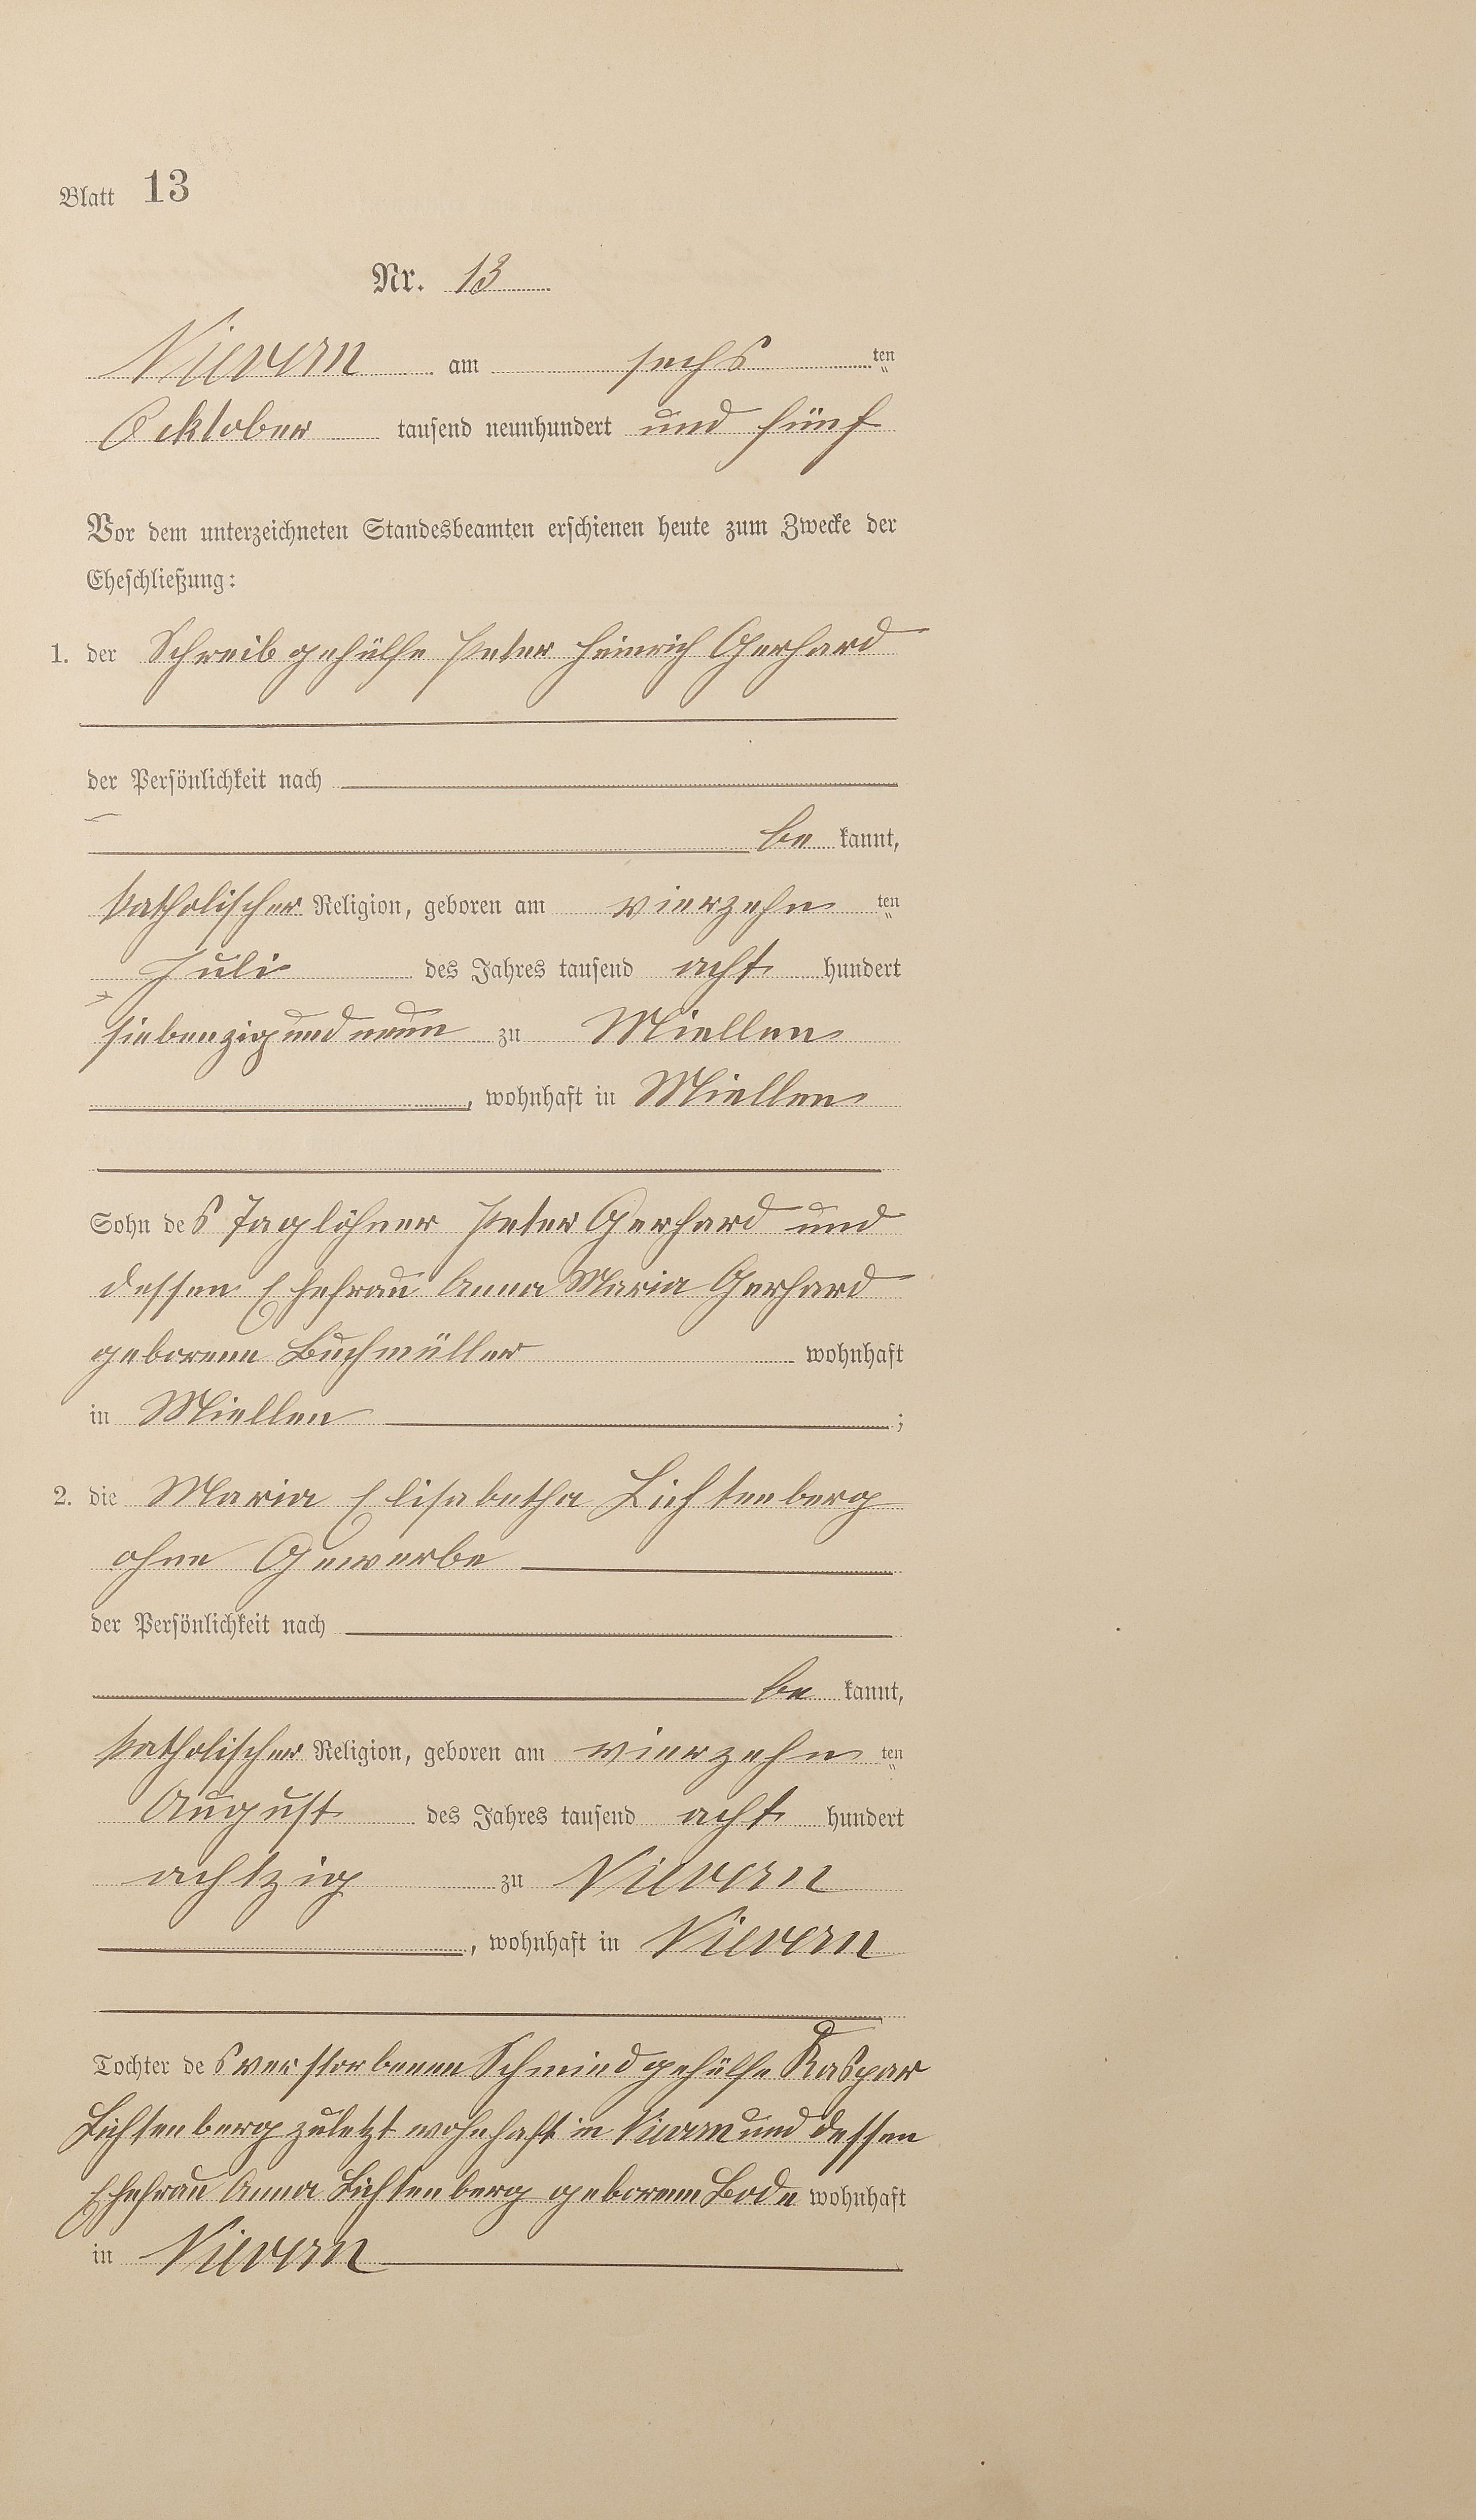 Blatt 13
Nr. 13
Nievern am sechs ten
Ocktober tausend neunhundert und fünf
Vor dem unterzeichneten Standesbeamten erschienen heute zum Zwecke der
Eheschließung:
1. der Schreibgehülfe Peter Heinrich Gerhard
der Persönlichkeit nach
be kannt,
katholischer Religion, geboren am vierzehn ten
Juli des Jahres tausend acht hundert
siebenzig und neun zu Miellen
, wohnhaft in Miellen
Sohn des Taglöhner Peter Gerhard und
dessen Ehefrau Anna Maria Gerhard
geborene Buchmüller wohnhaft
in Miellen ;
2. die Maria Elisabetha Lichtenberg
ohne Gewerbe
der Persönlichkeit nach
be kannt,
katholischer Religion, geboren am vierzehn ten
August des Jahres tausend acht hundert
achtzig zu Nievern
, wohnhaft in Nievern
Tochter des verstorbenen Schmiedgehülfe Kaspar
Lichtenberg zuletzt wohnhaft in Nievern und dessen
Ehefrau Anna Lichtenberg geborene Bode wohnhaft
in Nievern